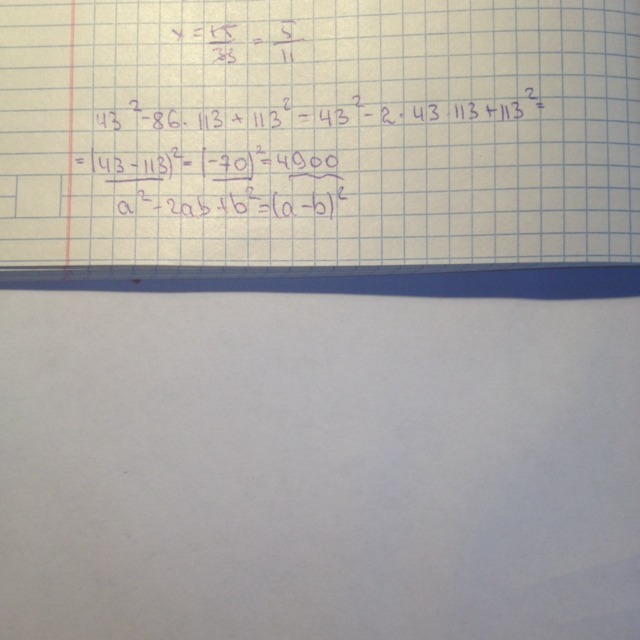 x = 15/33 = 5/11
43² - 86 · 113 + 113² = 43² - 2 · 43 113 + 113² =
= (43 - 113)² = (-70)² = 4900
a² - 2ab + b² = (a - b)²